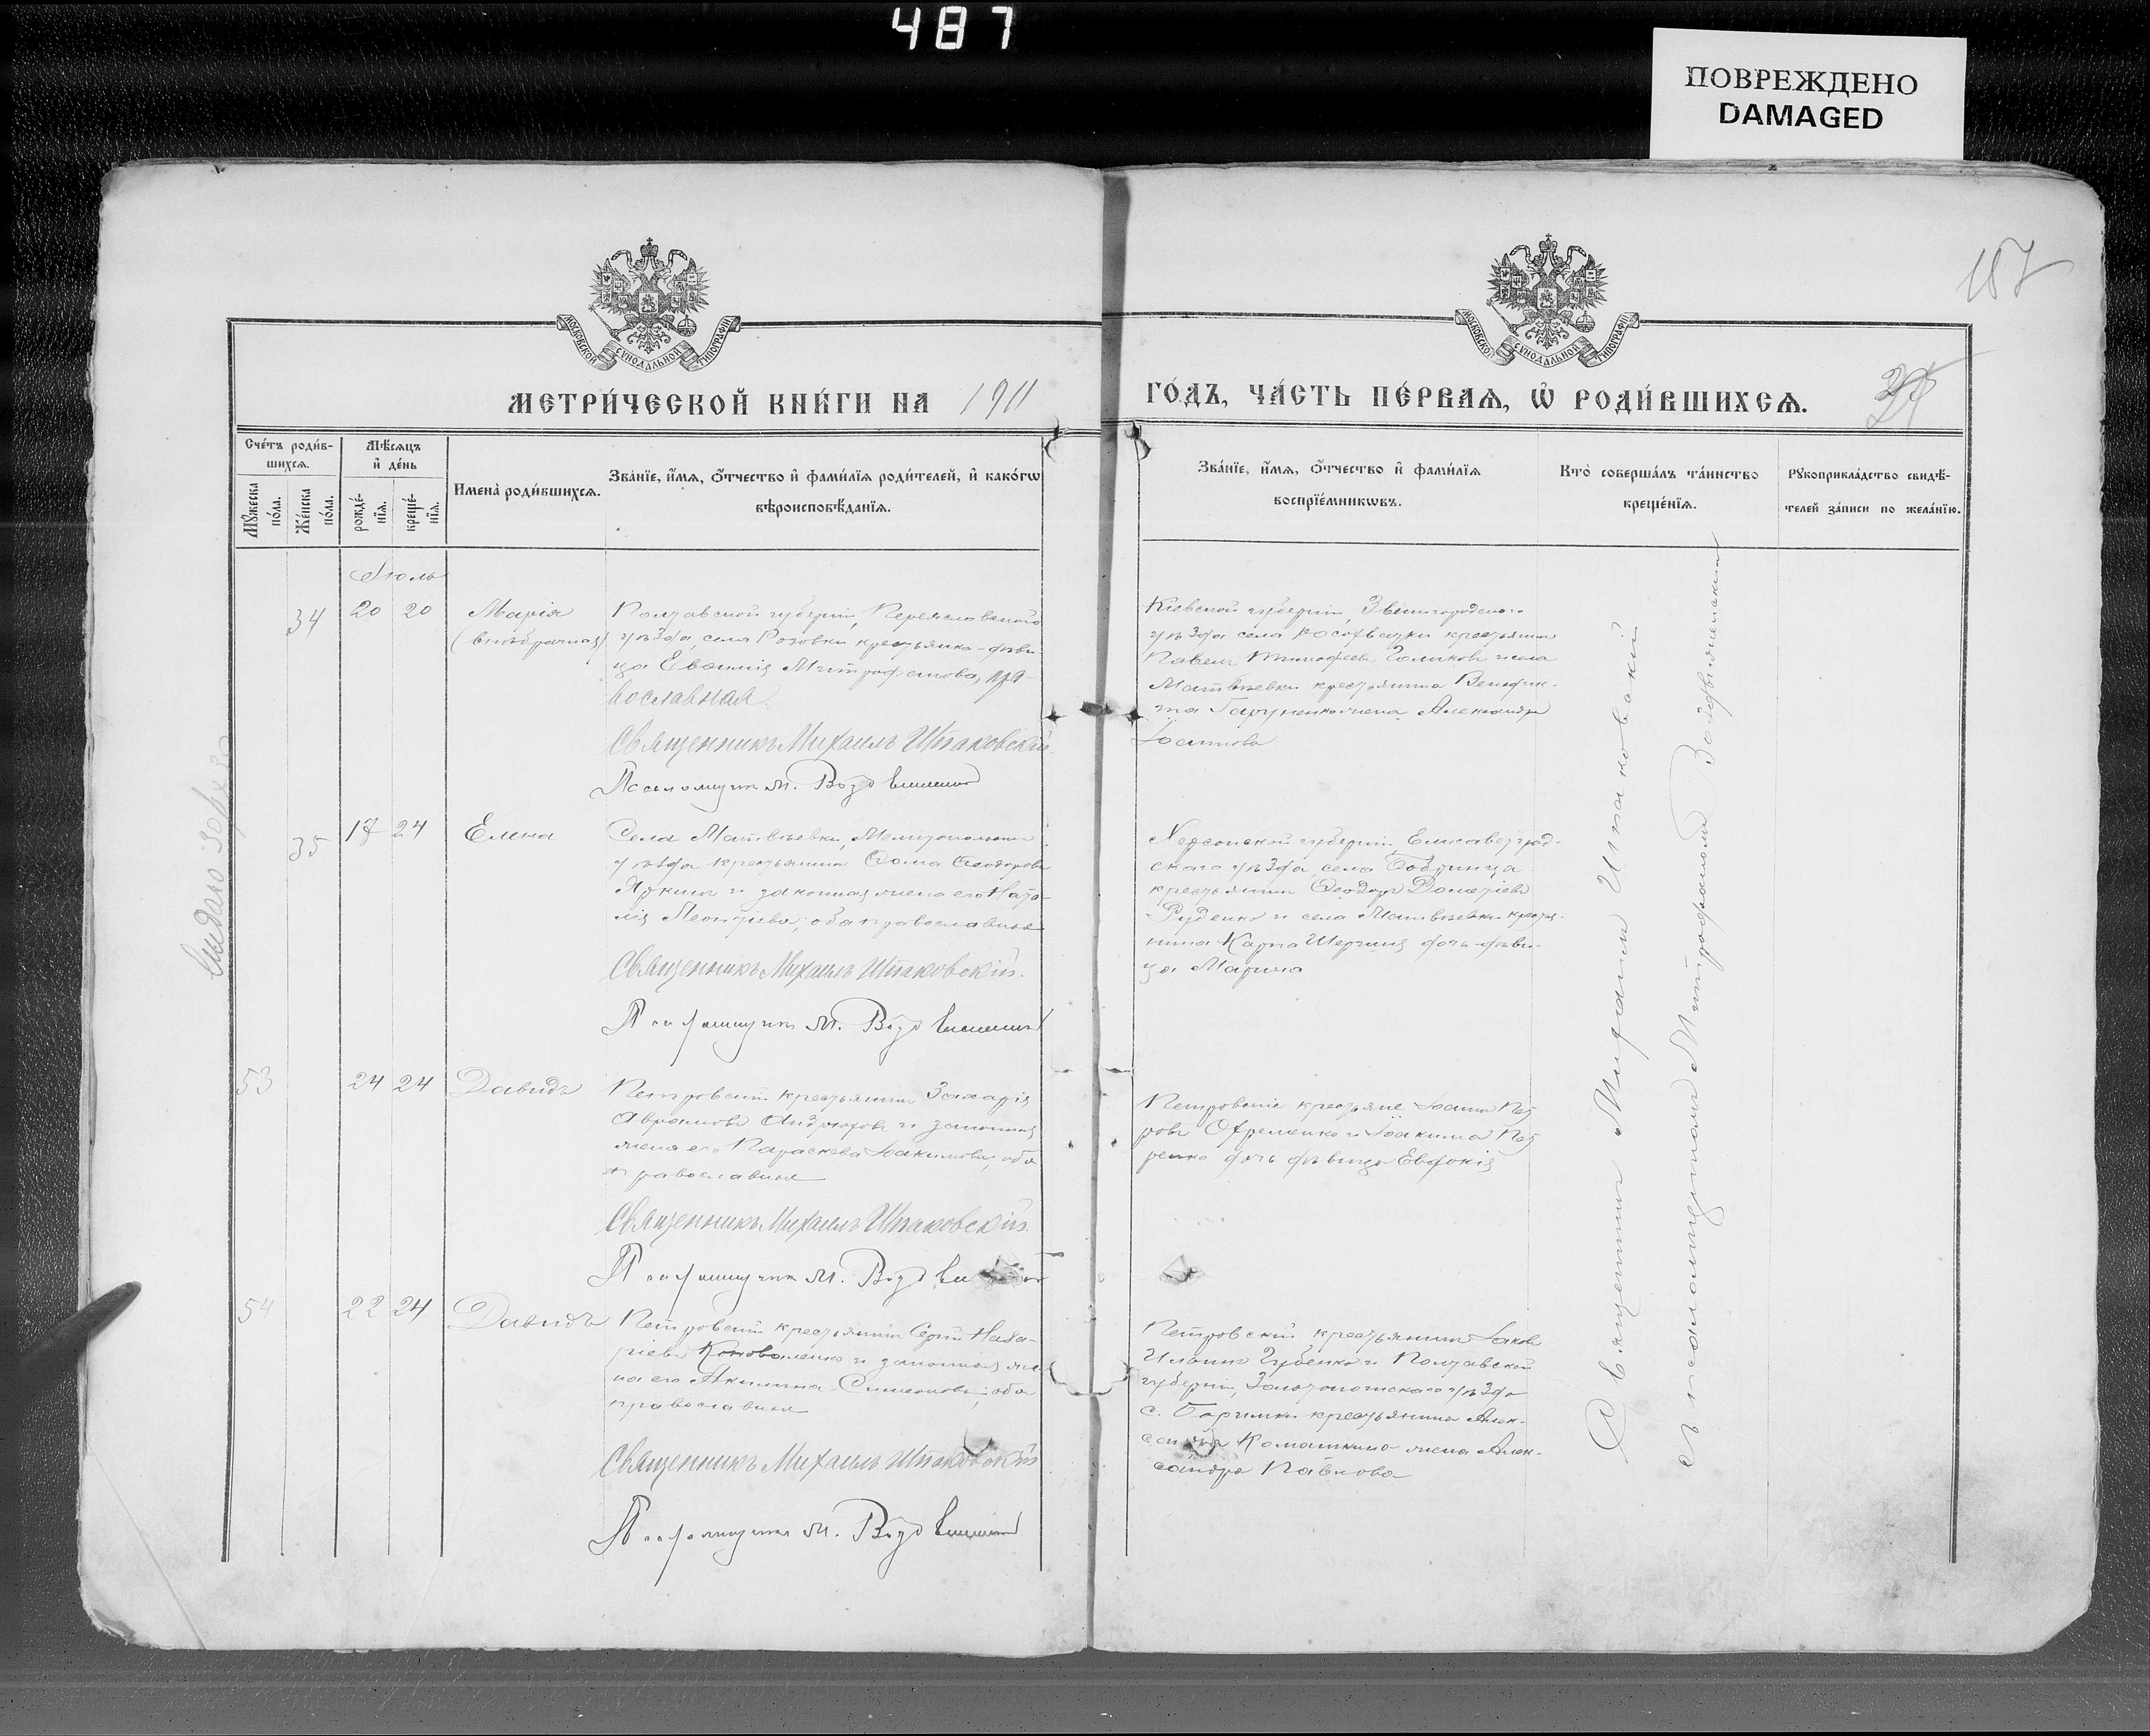 487
ПОВРЕЖДЕНО
DAMAGED
187
МОСКОВСКОЙ СУНОДАЛЬНОЙ ТИПОГРАФІИ
МОСКОВСКОЙ СУНОДАЛЬНОЙ ТИПОГРАФІИ
МЕТРИ́ЧЕСКОЙ КНИ́ГИ НА 1911
ГО́ДЪ, ЧА́СТЬ ПЕ́РВАѦ, Ѡ҆ РОДИ́ВШИХСѦ.
Сче́тъ роди́в-
шихсѧ.
Мꙋ́жеска по́ла.
Же́нска по́ла.
Мѣ́сѧцъ
и҆ де́нь
рожде́-
нїѧ.
креще́-
нїѧ.
Имена̀ роди́вшихсѧ.
Зва́нїе, и҆́мѧ, ѻ҆́тчество и҆ фами́лїѧ роди́телей, и҆ како́гѡ
вѣроисповѣ́данїѧ.
Зва́нїе, и҆́мѧ, ѻ҆́тчество и҆ фами́лїѧ
воспрїе́мникѡвъ.
Кто̀ соверша́лъ та́инство
креще́нїѧ.
Рꙋкоприкла́дство свидѣ́-
телей за́писи по жела́нїю.
Іюль
34 20 20 Марія
(внѣбрачная)
Полтавской губерніи, Переяславскаго
уѣзда, села Розовки крестьянка-дѣви-
ца Евфимія Митрофанова, пра-
вославная.
Священникъ Михаилъ Шпаковскій.
Псаломщикъ М. Воздвиженскій
Кіевской губерніи, Звенигородскаго
уѣзда села крестьянинъ
Павелъ Тимофеевъ Голиковъ и села
Матвѣевки крестьянина Венедик-
та жена Александра
Іоаннова
35 17 24 Елена
Села Матвѣевки, Мелитопольскаго
уѣзда крестьянинъ Ѳома Ѳеодоровъ
и законная жена его Ната-
лія Леонтіева, оба православные
Священникъ Михаилъ Шпаковскій.
Псаломщикъ М. Воздвиженскій
Херсонской губерніи Елисаветград-
скаго уѣзда, села Бобринца
крестьянинъ Ѳеодоръ Дометіевъ
Руденко и села Матвѣевки крестья-
нина Карпа дочь-дѣви-
ца Марина
53 24 24 Давидъ
Петровскій крестьянинъ Захарія
Авраамовъ и законная
жена его Параскева Іоакимова, оба
православные
Священникъ Михаилъ Шпаковскій.
Псаломщикъ М. Воздвиженскій
Петровскіе крестьяне Іоаннъ Пет-
ровъ Ефременко и Іоакима Пет-
ренко дочь дѣвица Евдокія
54 22 24 Давидъ
Петровскій крестьянинъ Сергій Наза-
ріевъ Коноваленко и законная же-
на его Акилина Симеонова; оба
православные
Священникъ Михаилъ Шпаковскій
Псаломщикъ М. Воздвиженскій
Петровскій крестьянинъ Іаковъ
Ильинъ Губенко и Полтавской
губерніи, Золотоношскаго уѣзда
с. крестьянина Алек-
сандра жена Алек-
сандра Павлова
Священникъ Михаилъ Шпаковскій
съ псаломщикомъ Митрофаномъ Воздвиженскимъ